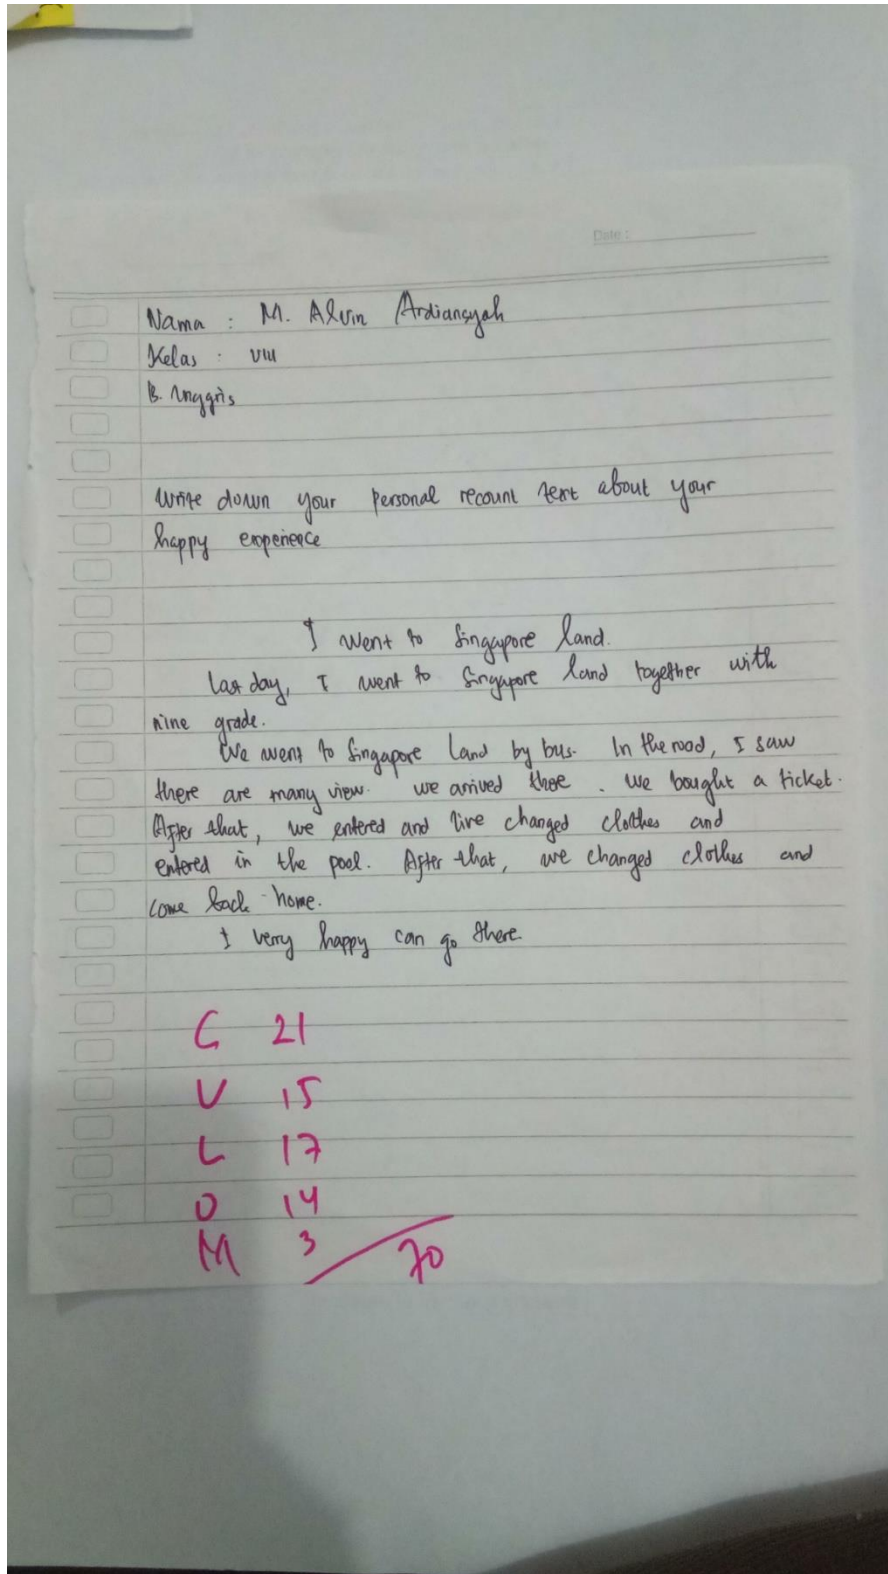 Date :
Nama : M. Alvin Ardiansyah
Kelas : VIII
B. Inggris
Write down your personal recount text about your
happy experience
I went to Singapore land.
Last day, I went to Singapore land together with
nine grade.
We went to Singapore land by bus. In the road, I saw
there are many view. we arrived there . we bought a ticket.
After that, we entered and live changed clothes and
entered in the pool. After that, we changed clothes and
come back home.
I verry happy can go there.
C 21
V 15
L 17
O 14
M 3
70